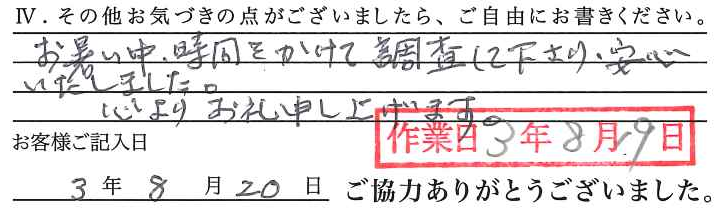 Ⅳ．その他お気づきの点がございましたら、ご自由にお書きください。
お暑い中、時間をかけて調査して下さり、安心
いたしました。
心よりお礼申し上げます。
お客様ご記入日
作業日 3年8月19日
3年8月20日 ご協力ありがとうございました。